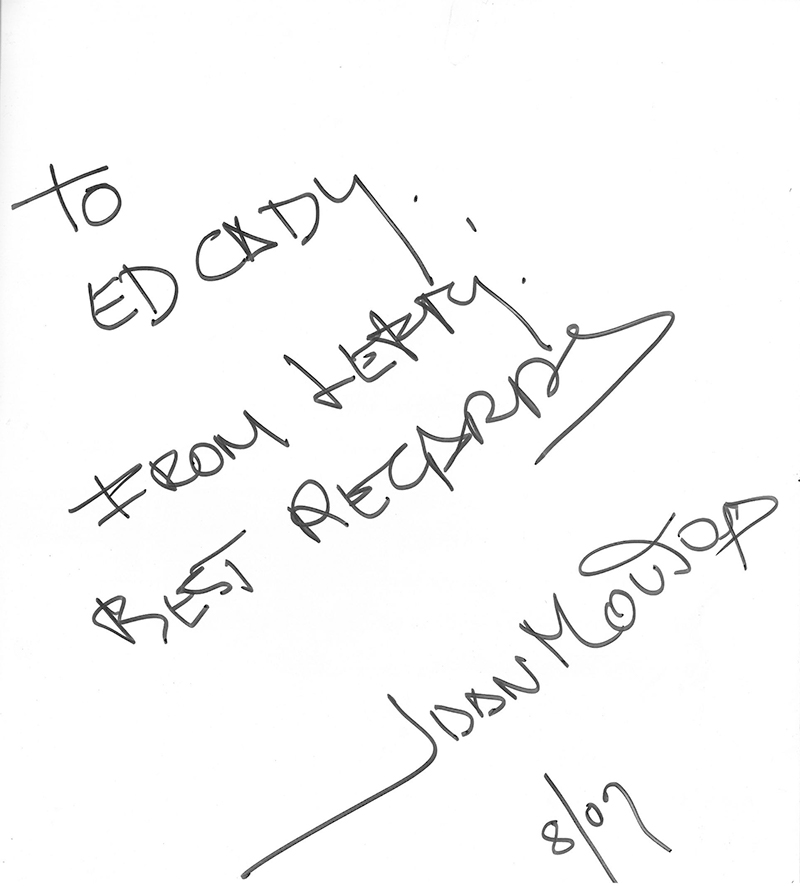 TO
ED CADY
FROM JERRY
BEST REGARDS
8/07